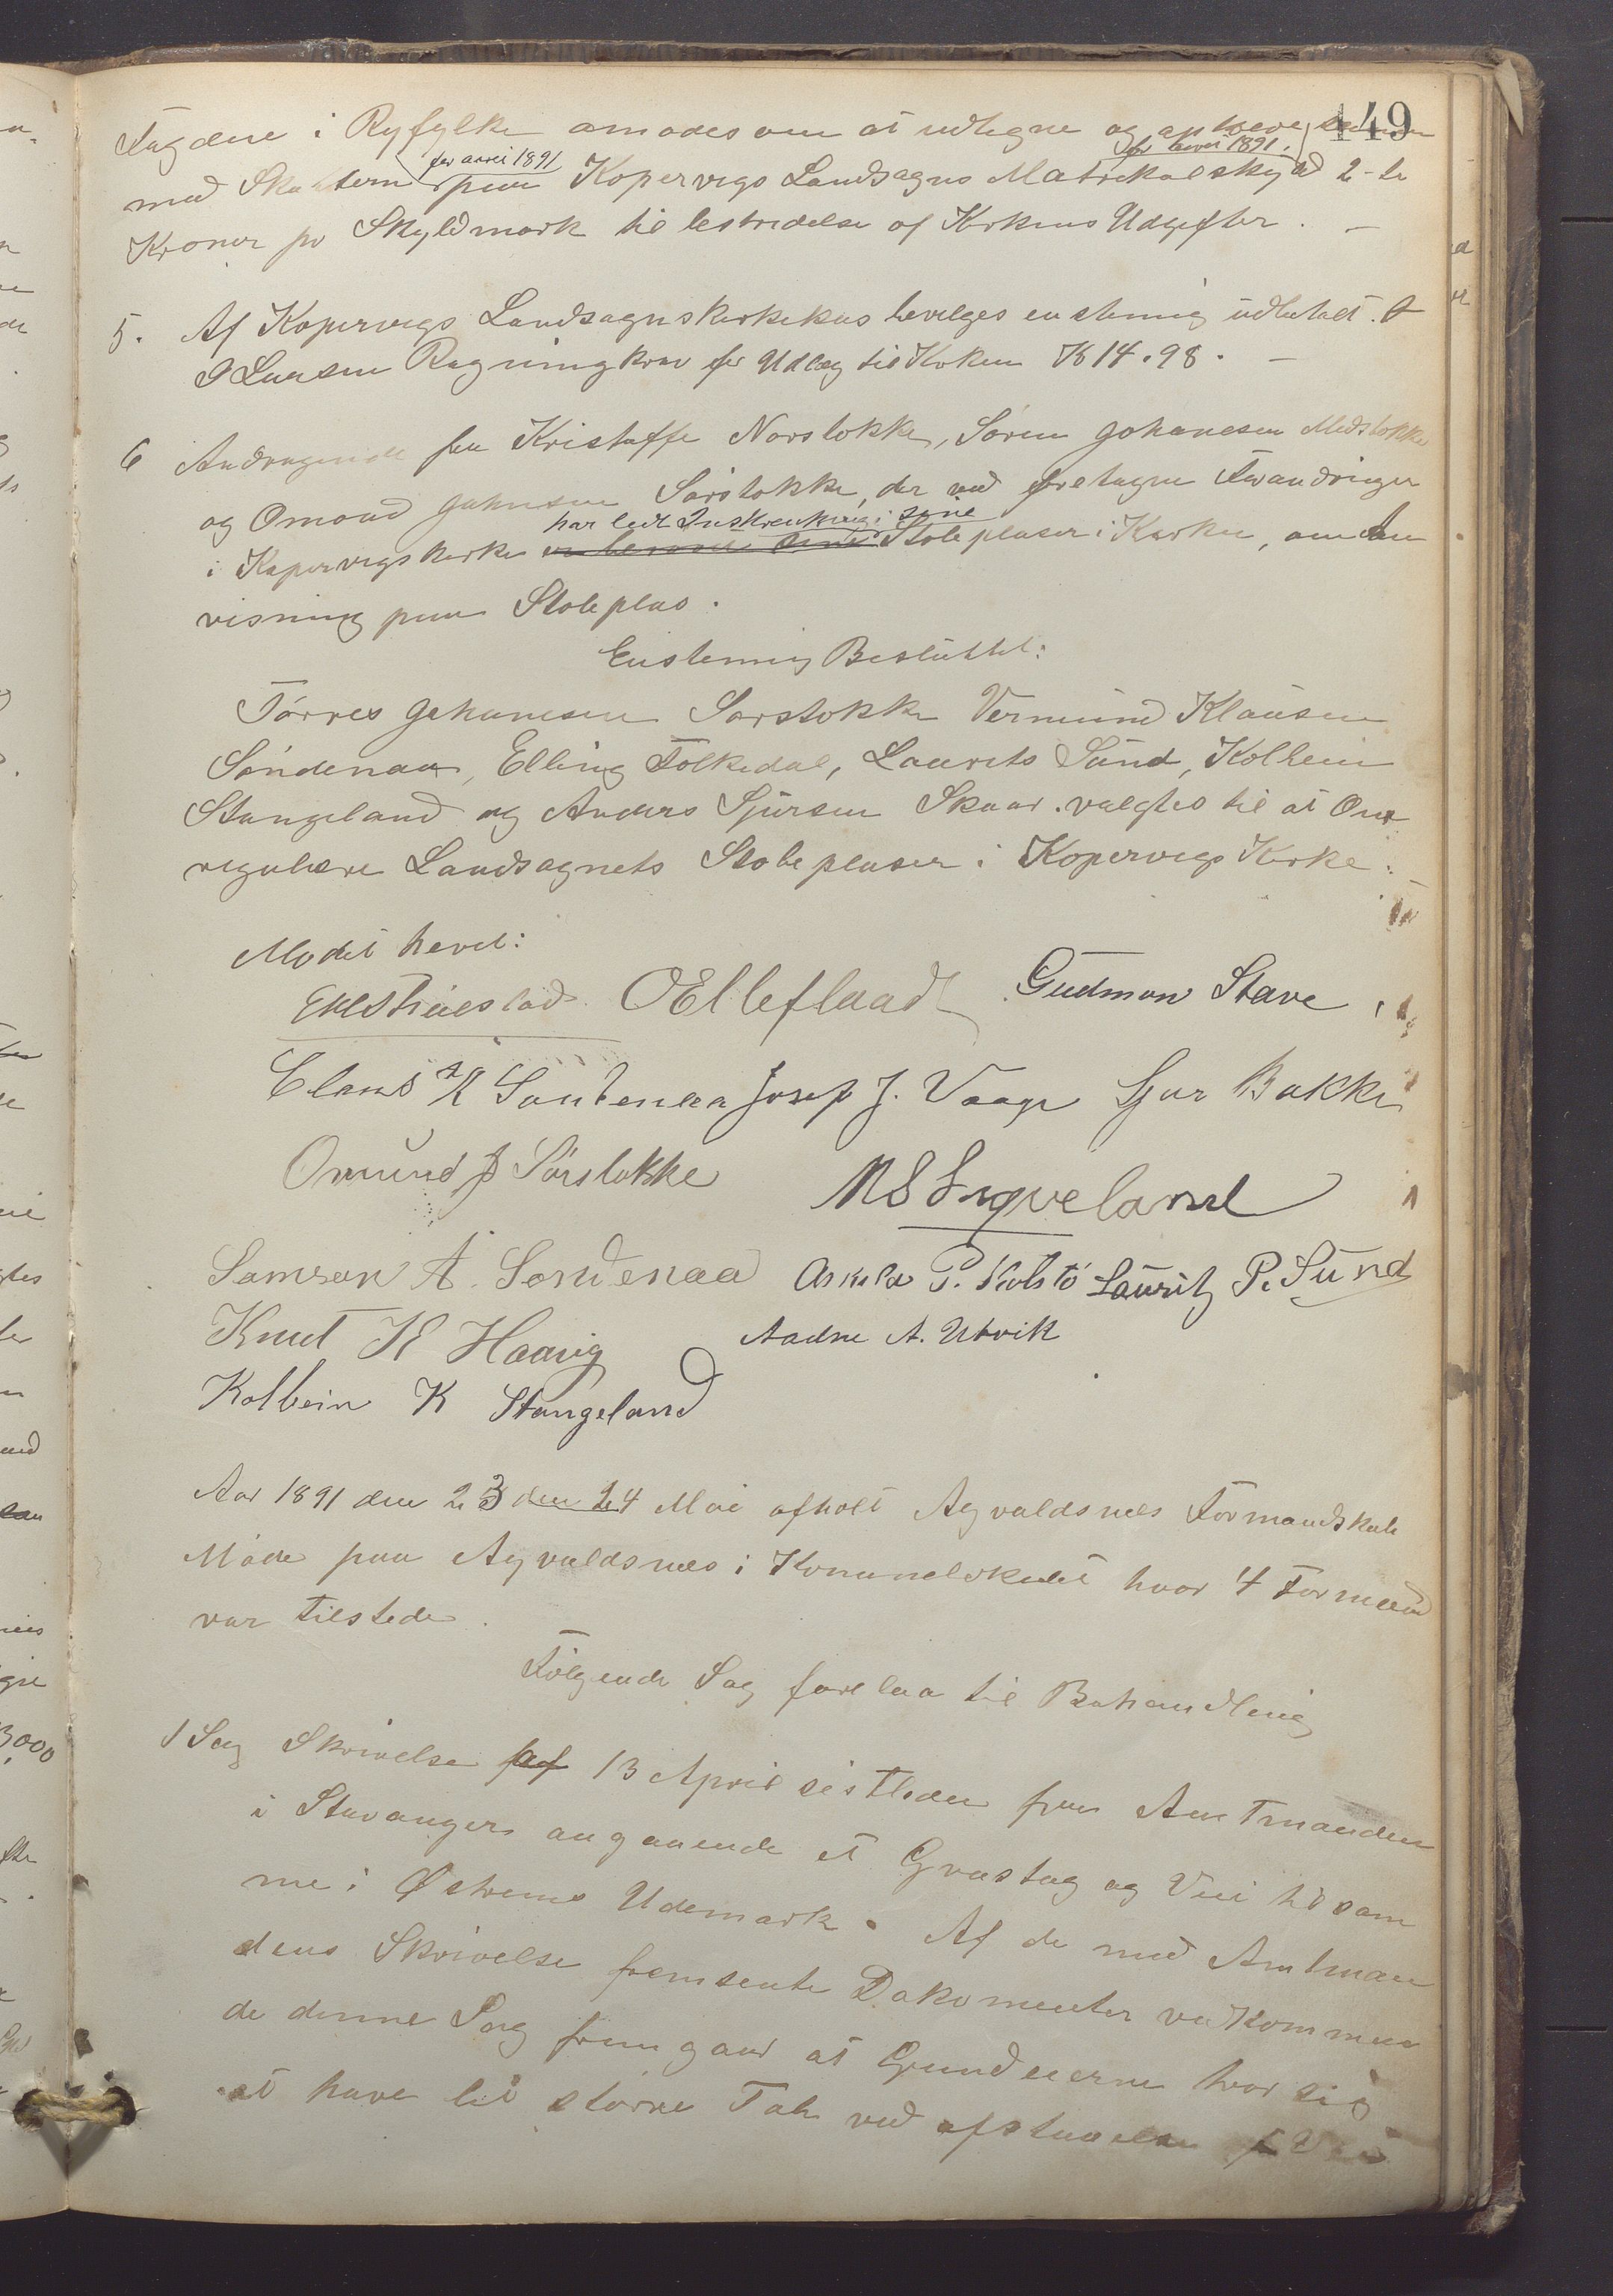 149
Fogdene i Ryfylke anmodes om at udligne og opkreve sammen
for aaret 1891 for aaret 1891.
med Skatterne paa Kopervigs Landsogns Matrikulskyld 2 - to
Kroner pr Skyldmark til bestridelse af Kirkens Udgifter. —
5. Af Kopervigs Landsognskirkekas bevilges enstemig udbetalt. A
I Larsen Regningkrav for Udlæg til Kirken Kr 14.98. —
6 Andragende fra Kristoffe Norstokke, Søren Johanesen Medstokke
og Omond Johnsen Sørstokke, der ved foretagne Forandringer
har lidt Inskrenkning i sine
i Kopervigs kirke Stoleplaser i Kirken, om An
visning paa Stoleplas.
Enstemig Besluttet:
Torres Johanesen Sørstokke Vermund Klausen
Søndenaa, Elling Folkedal, Laurits Sund, Kolbein
Stangeland og Anders Sjursen Skaar. valgtes til at Om
regulere Landsognets Stoleplaser i Kopervigs Kirke. —
Mødet hevet:
OElleflaadt Gudmon Stave
Claus K Sondenaa Josef J. Vaage Sjur Bakke
Omund J Sørstokke MS Liqveland
Samson A. Sondenaa Askild P. Kolstø Lauritz P. Sund
Knut K Haavig Aadne A. Utvik
Kolbein K Stangeland
Aar 1891 den 23 den 24 Mai afholt Agvaldsnes Formandskab
Møde paa Agvaldsnes i Komunelokalet hvor 4 Formænd
var tilstede.
Følgende Sag forelaa til Behandling
1 Sag Skrivelse af 13 April sistleden fra Amtmanden
i Stavanger angaaende et Grustag og Vei til sam
me i Østrems Udemark. Af de med Amtman
dens Skrivelse fremsente Dokomenter vedkommen
de denne Sag fremgaar at Grundeierne hver sig
at have lit større Tab ved afstaaelse f Vei